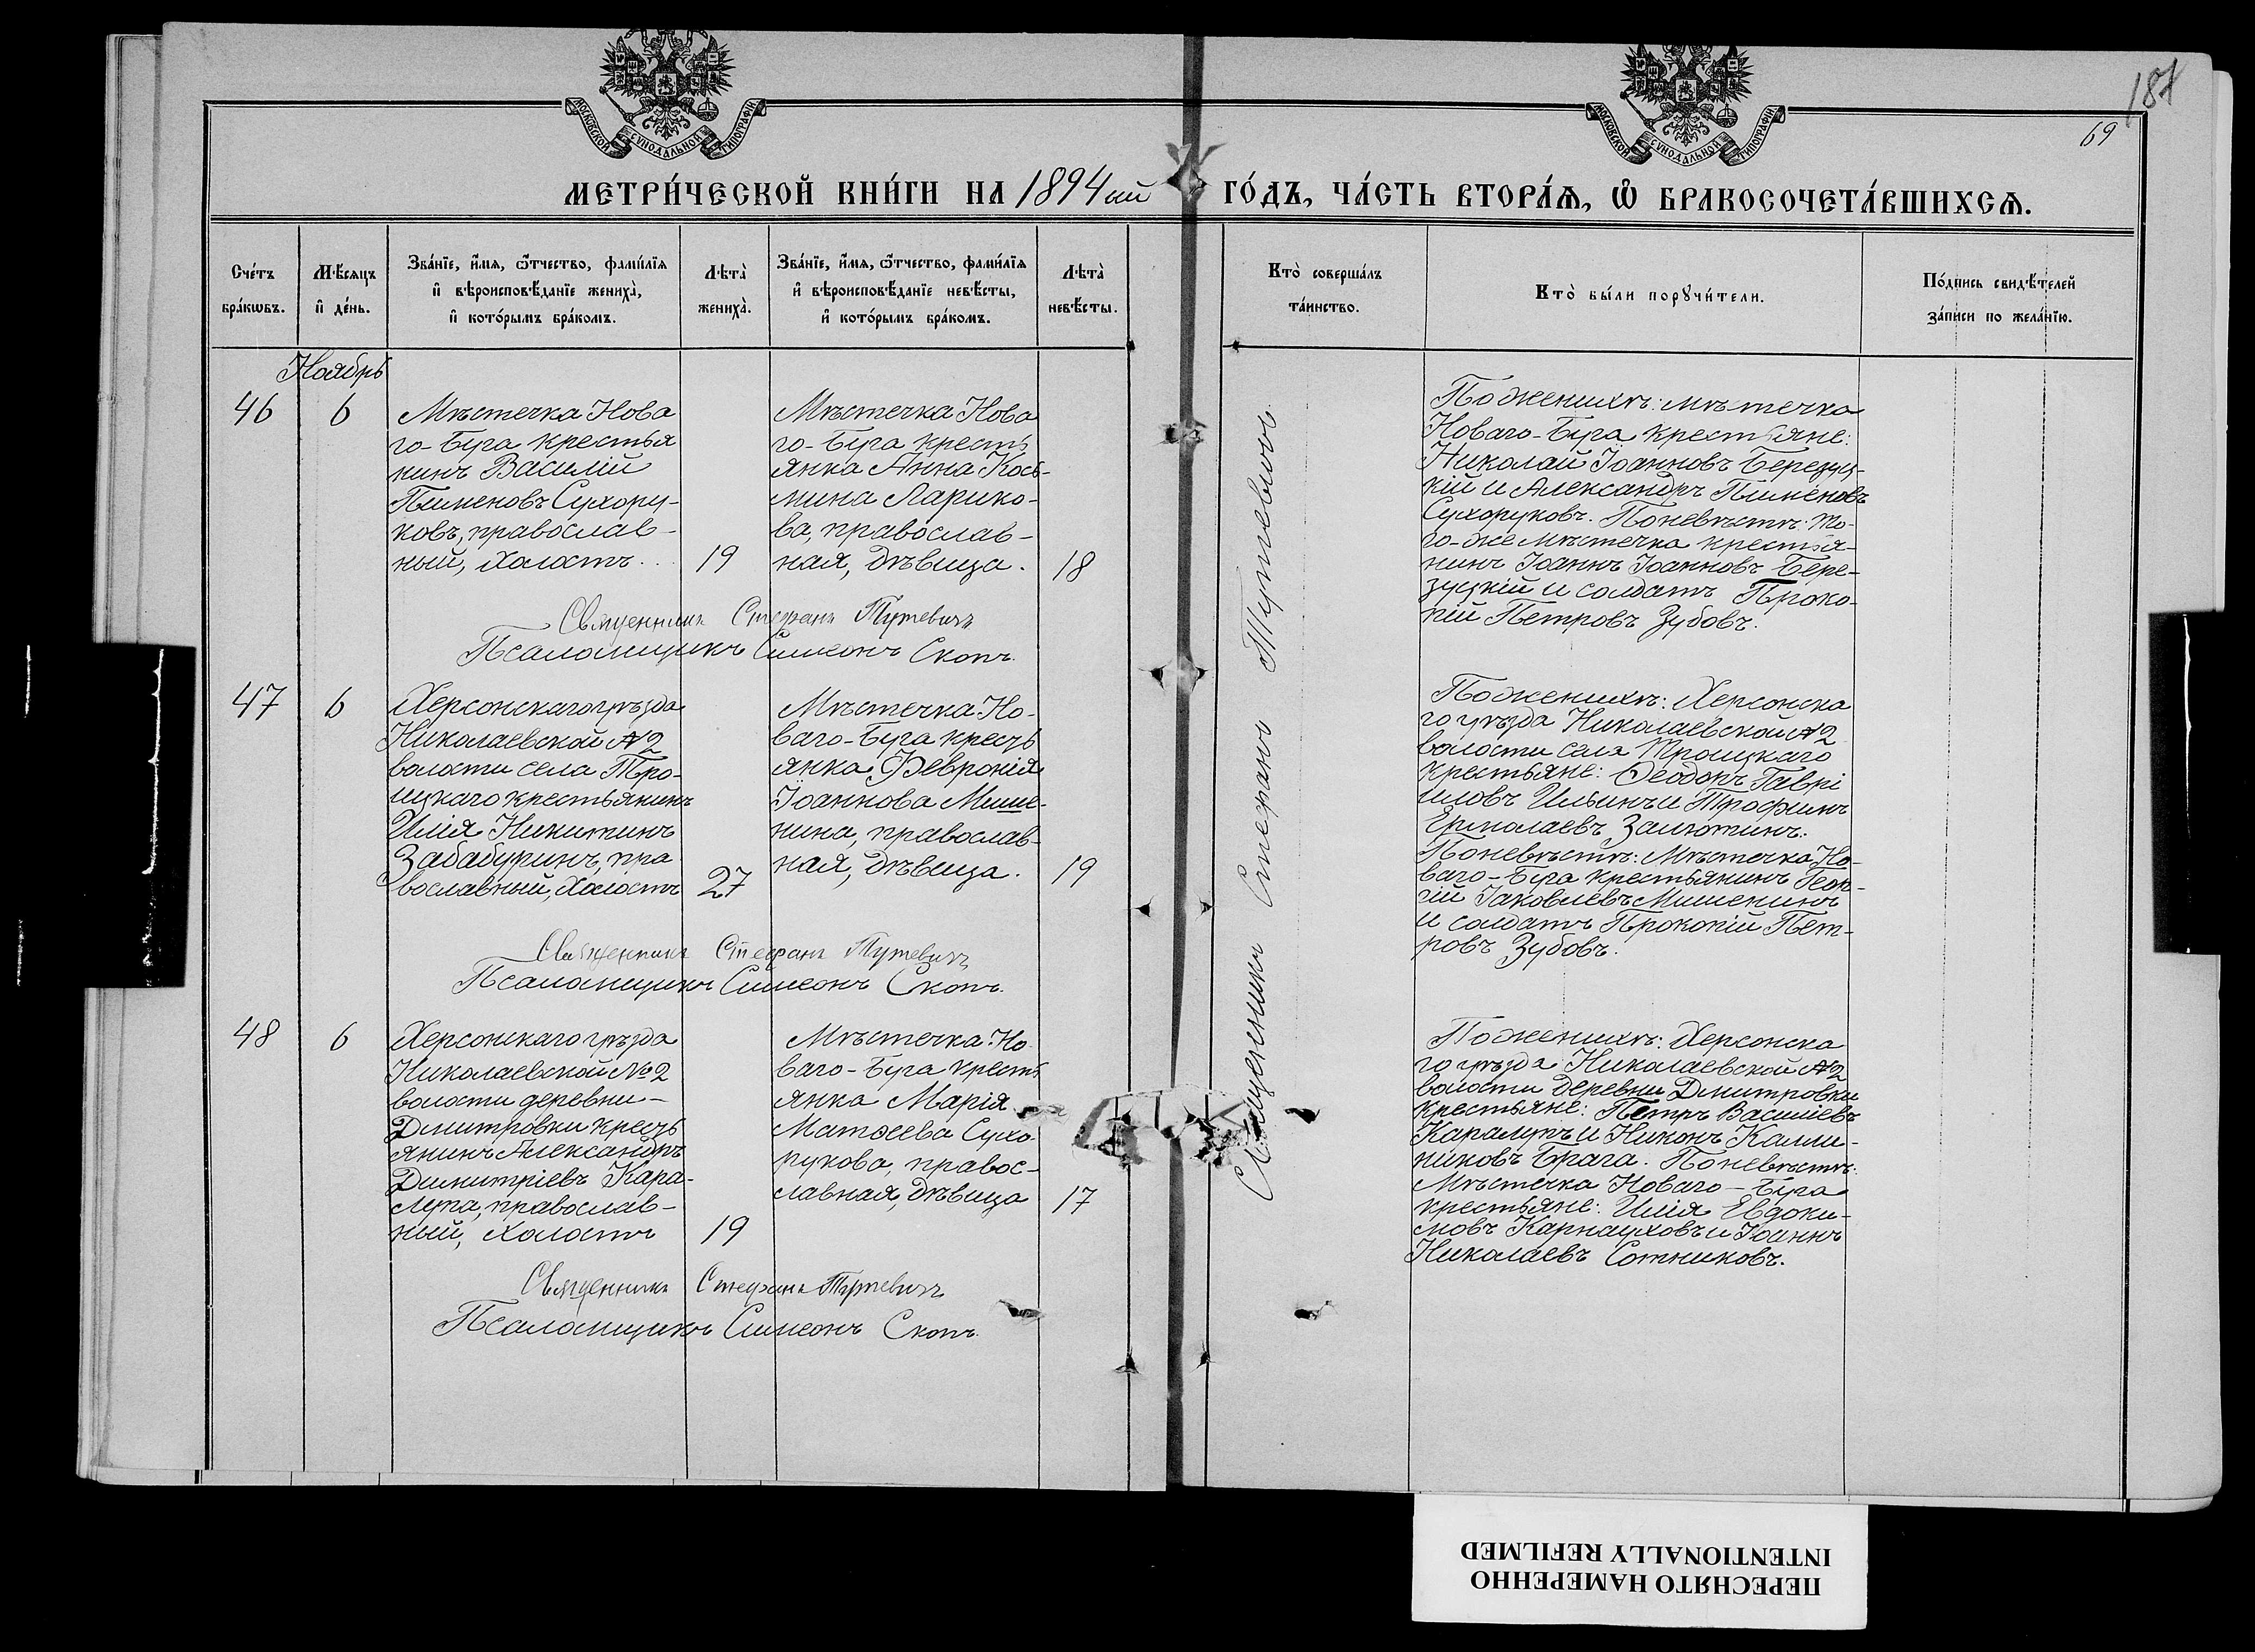 МОСКОВСКОЙ СѴНОДАЛЬНОЙ ТИПОГРАФІИ
МОСКОВСКОЙ СѴНОДАЛЬНОЙ ТИПОГРАФІИ
187
69
МЕТРИ́ЧЕСКОЙ КНИ́ГИ НА 1894ый ГО́ДЪ, ЧА́СТЬ ВТОРА́Ѧ, Ѡ҆ БРАКОСОЧЕТА́ВШИХСѦ.
Сче́тъ
бра́кѡвъ.
Мѣ́сяцъ
и҆ де́нь.
Зва́нїе, и҆́мя, ѻ҆́тчество, фамѝлїя
и҆ вѣроисповѣ́данїе жениха̀,
и҆ кото́рымъ бра́комъ.
Лѣта̀
жениха̀.
Зва́нїе, и҆́мя, ѻ҆́тчество, фами́лїя
и҆ вѣроисповѣ́данїе невѣ́сты,
и҆ кото́рымъ бра́комъ.
Лѣта̀
невѣ́сты.
Кто̀ соверша́лъ
та́инство.
Кто̀ бы́ли порꙋчи́тели.
По́дпись свидѣ́телей
за́писи по жела́нїю.
Ноябрь
46
6
Мѣстечка Нова
го-Буга крестья
нинъ Василій
Пименовъ Сухору-
ковъ, православ-
ный, холостъ.
19
Мѣстечка Нова
го-Буга кресть
янка Анна Кось-
мина Ларико-
ва, православ-
ная, дѣвица.
18
Священникъ Стефанъ Тутевичъ
Псаломщикъ Симеонъ Скопъ.
Священникъ Стефанъ Тутевичъ
По женихѣ: мѣстечка
Новаго-Буга крестьяне:
Николай Іоанновъ Березуц-
кій и Александръ Пименовъ
Сухоруковъ. По невѣстѣ: то-
го-же мѣстечка крестья-
нинъ Іоаннъ Іоанновъ Бере-
зуцкій и солдатъ Проко-
пій Петровъ Зубовъ.
47
6
Херсонскаго уѣзда
Николаевской №2
волости села Тро-
ицкаго крестьянинъ
Илія Никитинъ
Забабуринъ, пра
вославный, холостъ
27
Мѣстечка Но-
ваго-Буга кресть
янка Февронія
Іоаннова Мише-
нина, православ-
ная, дѣвица.
19
Священникъ Стефанъ Тутевичъ
Псаломщикъ Симеонъ Скопъ.
По женихѣ: Херсонска
го уѣзда Николаевской №2
волости села Троицкаго
крестьяне: Ѳеодотъ Гаврі
иловъ Ильинъ и Трофимъ
Ермолаевъ Замотинъ.
По невѣстѣ: Мѣстечка Но-
ваго-Буга крестьянинъ Геор-
гій Іаковлевъ Мишенинъ
и солдатъ Прокопій Пет-
ровъ Зубовъ.
48
6
Херсонскаго уѣзда
Николаевской №2
волости деревни-
Дмитровки кресть
янинъ Александръ
Димитріевъ Кара-
лупа, православ-
ный, холостъ
19
Мѣстечка Но
ваго-Буга кресть
янка Марія
Матѳеева Сухо
рукова, правос-
лавная, дѣвица
17
Священникъ Стефанъ Тутевичъ
Псаломщикъ Симеонъ Скопъ.
По женихѣ: Херсонска
го уѣзда Николаевской №2
волости деревни Дмитровки
крестьяне: Петръ Василіевъ
Каралупъ и Никонъ Калли-
никовъ Брага. По невѣстѣ:
Мѣстечка Новаго-Буга
крестьяне: Илія Евдоки-
мовъ Карнауховъ и Іоаннъ
Николаевъ Сотниковъ.
ПЕРЕСНЯТО НАМЕРЕННО
INTENTIONALLY REFILMED